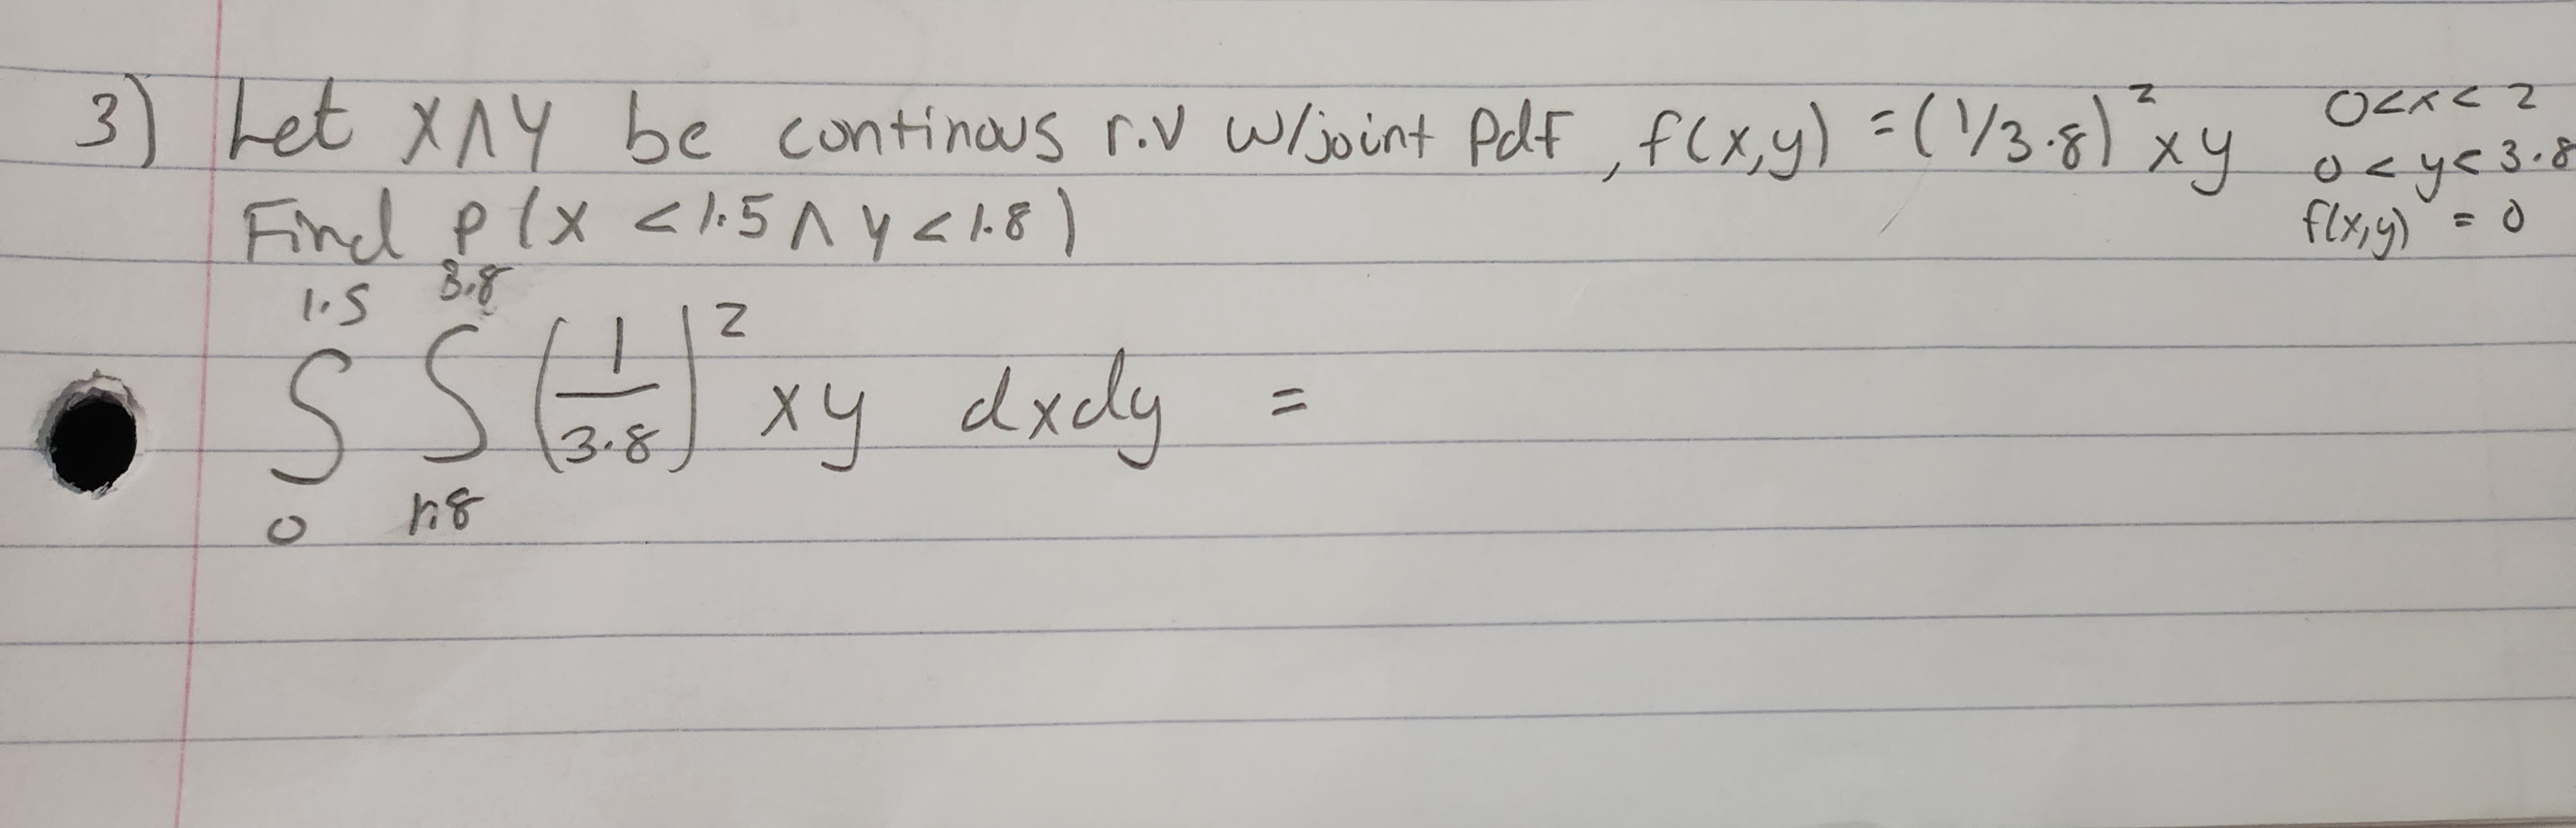 3) Let X∧Y be continous r.v w/joint Pdf, f(x,y) = (1/3.8)² xy 0<x<2
0<y<3.8
Find P(X <1.5 ∧ Y<1.8) f(x,y) = 0
∫₀^1.5 ∫₁.₈^3.8 (1/3.8)² xy dxdy =